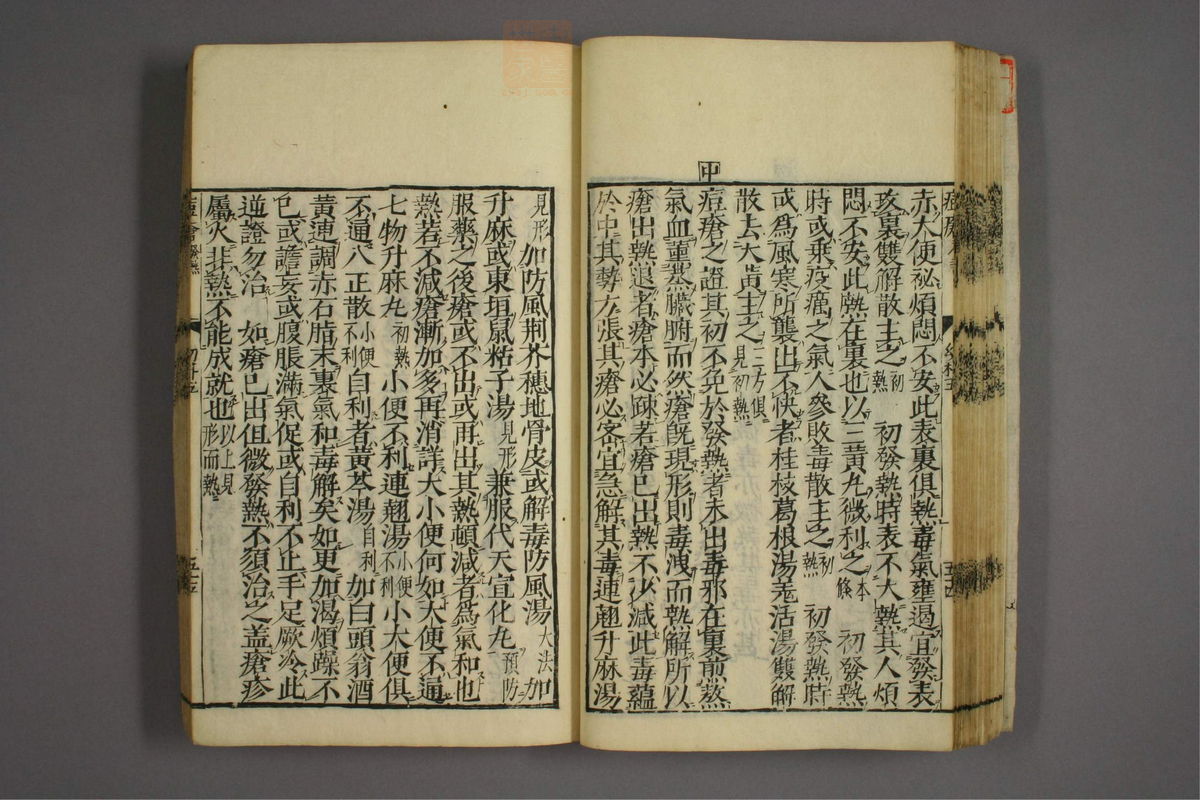 赤大便祕煩悶不安此表裏俱熱毒氣壅遏宜發表
攻裏雙解散主之初熱 初發熱時表不大熱其人煩
悶不安此熱在裏也以三黃丸微利之本條 初發熱
時或乘疫癘之氣人參敗毒散主之初熱 初發熱時
或爲風寒所襲出不快者桂枝葛根湯羌活湯雙解
散去大黃主之三方俱見初熱
中
痘瘡之證其初不免於發熱者未出毒邪在裏煎蒸
氣血薰蒸臟腑而然瘡旣現形則毒洩而熱解所以
瘡出熱退者瘡本必疎若瘡已出熱不少減此毒蘊
於中其勢方張其瘡必密宜急解其毒連翹升麻湯
見形加防風荊芥穗地骨皮或解毒防風湯大法加
升麻或東垣鼠粘子湯見形兼服代天宣化丸預防
服藥之後瘡或不出或再出其熱頓減者爲氣和也
熱若不減瘡漸加多再消詳大小便何如大便不通
七物升麻丸初熱小便不利連翹湯小便不利小大便俱
不通八正散小便不利自利者黃芩湯自利加白頭翁酒
黃連調赤石脂末裹氣和毒解矣如更加渴煩躁不
已或譫妄或腹脹滿氣促或自利不止手足厥冷此
逆證勿治 如瘡已出但微發熱不須治之盖瘡疹
屬火非熱不能成就也以上見形而熱
痘瘡發熱